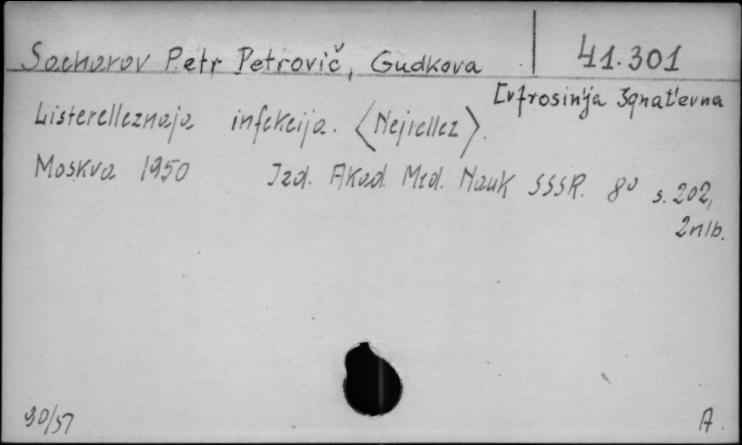 Sacharov Petr Petrovič, Gudkova 41.301
Evfrosin'ja Ignat'evna
Listerelleznaja infekcija. <Nejrellez>.
Moskva 1950 Izd. Akad. Med. Nauk SSSR. 8° s. 202,
2 nlb.
90/57 A.